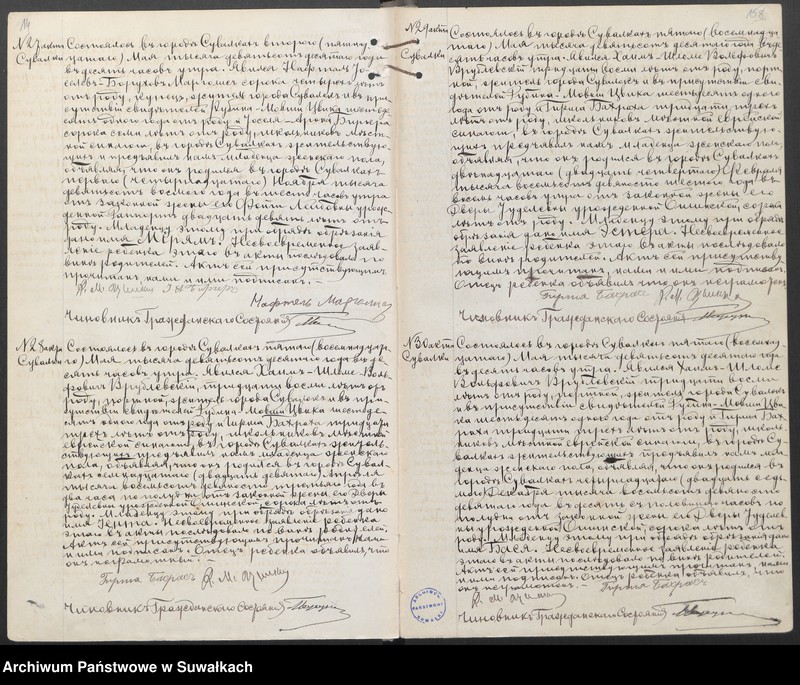 14
№27 акт Состоялось въ городѣ Сувалкахъ второго (пятнад-
Сувалки цатаго) Мая тысяча девятьсотъ десятаго года
въ десять часовъ утра. Явился Нафтали
Марголисъ сорока четырехъ лѣтъ
отъ роду, купецъ, житель города Сувалокъ и въ при-
сутствіи свидѣтелей Рубина-Мовши Цвика шестьде-
сятъ одного года отъ роду и
сорока семи лѣтъ отъ роду, школьниковъ мѣстн
въ городѣ Сувалкахъ жительствую-
щихъ и предъявилъ намъ младенца женскаго пола,
объявляя, что онъ родился въ городѣ Сувалкахъ
перваго (четырнадцатаго) Ноября тысяча
девятьсотъ восьмого года въ шесть часовъ утра
отъ законной жены его урож-
денной двадцать девять лѣтъ отъ
роду. Младенцу этому при обрядѣ обрѣзанія
дано имя Мерямъ. Несвоевременное заяв-
леніе ребенка этого въ акты послѣдовало по
винѣ родителей. Актъ сей присутствующимъ
прочитанъ нами и ими подписанъ. -
Чиновникъ Гражданскаго Состоянія
№28 акта Состоялось въ городѣ Сувалкахъ пятаго (восемнадцата-
Сувалки го) Мая тысяча девятьсотъ десятаго года въ де-
сять часовъ утра. Явился Хаимъ-Шлеме Воль-
фовичъ Врублевскій, тридцати восьми лѣтъ отъ
роду, портной, житель города Сувалокъ и въ при-
сутствіи свидѣтелей Рубина-Мовши Цвика шестьде-
сятъ одного года отъ роду и Гирша Бахраха тридцати
трехъ лѣтъ отъ роду, школьниковъ мѣстной
еврейской синагоги, въ городѣ Сувалкахъ житель-
ствующихъ предъявилъ намъ младенца женскаго
пола, объявляя, что онъ родился въ городѣ Сувал-
кахъ (двадцать девятаго) Апрѣля
тысяча восемьсотъ девяносто третьяго года въ
два часа по полудни отъ законной жены его Двейры
Юделевой урожденной Слимской, сорока лѣтъ отъ
роду. Младенцу этому при обрядѣ обрѣзанія дано
имя Несвоевременное заявленіе ребенка
этого въ акты послѣдовало по винѣ родителей.
Актъ сей присутствующимъ прочитанъ нами
и ими подписанъ. Отецъ ребенка объявилъ, что
онъ неграмотный. -
Чиновникъ Гражданскаго Состоянія
158
№29 акта Состоялось въ городѣ Сувалкахъ пятаго (восемнадца-
Сувалки таго) Мая тысяча девятьсотъ десятаго года въ де-
сять часовъ утра. Явился Хаимъ-Шлеме Вольфовичъ
Врублевскій тридцати восьми лѣтъ отъ роду, порт-
ной, житель города Сувалокъ и въ присутствіи сви-
дѣтелей Рубина-Мовши Цвика шестьдесятъ одного
года отъ роду и Гирша Бахраха тридцати трехъ
лѣтъ отъ роду, школьниковъ мѣстной еврейской
синагоги, въ городѣ Сувалкахъ жительствую-
щихъ предъявилъ намъ младенца женскаго пола,
объявляя, что онъ родился въ городѣ Сувалкахъ
двѣнадцатаго (двадцать четвертаго) Февраля
тысяча восемьсотъ девяносто шестого года въ
восемь часовъ утра отъ законной жены его
Двейры Юделевой урожденной Слимской, сорока
лѣтъ отъ роду. Младенцу этому при обрядѣ
обрѣзанія дано имя Эстера. Несвоевременное
заявленіе ребенка этого въ акты послѣдовало
по винѣ родителей. Актъ сей присутству-
ющимъ прочитанъ, нами и ими подписанъ.
Отецъ ребенка объявилъ что онъ неграмотный
Чиновникъ Гражданскаго Состоянія
№30 акта Состоялось въ городѣ Сувалкахъ пятаго (восемнад-
Сувалки цатаго) Мая тысяча девятьсотъ десятаго года
въ десять часовъ утра. Явился Хаимъ-Шлеме
Вольфовичъ Врублевскій тридцати восьми
лѣтъ отъ роду, портной, житель города Сувалокъ
и въ присутствіи свидѣтелей Рубина-Мовши Цви-
ка шестьдесятъ одного года отъ роду и Гирша Бах-
раха тридцати трехъ лѣтъ отъ роду, школь-
никовъ мѣстной еврейской синагоги, въ городѣ Су-
валкахъ жительствующихъ предъявилъ намъ мла-
денца женскаго пола, объявляя, что онъ родился въ
городѣ Сувалкахъ (двадцать седь-
мого) Декабря тысяча восемьсотъ девяносто
девятаго года въ десять съ половиною часовъ по
полудни отъ законной жены его Двейры Юделе-
вы урожденной Слимской, сорока лѣтъ отъ
роду. Младенцу этому при обрядѣ обрѣзанія дано
имя Бася. Несвоевременное заявленіе ребенка
этого въ акты послѣдовало по винѣ родителей.
Актъ сей присутствующимъ прочитанъ, нами
и ими подписанъ. Отецъ ребенка объявилъ, что
онъ неграмотенъ. -
Чиновникъ Гражданскаго Состоянія
ARCHIWUM PAŃSTWOWE SUWAŁKI
Archiwum Państwowe w Suwałkach